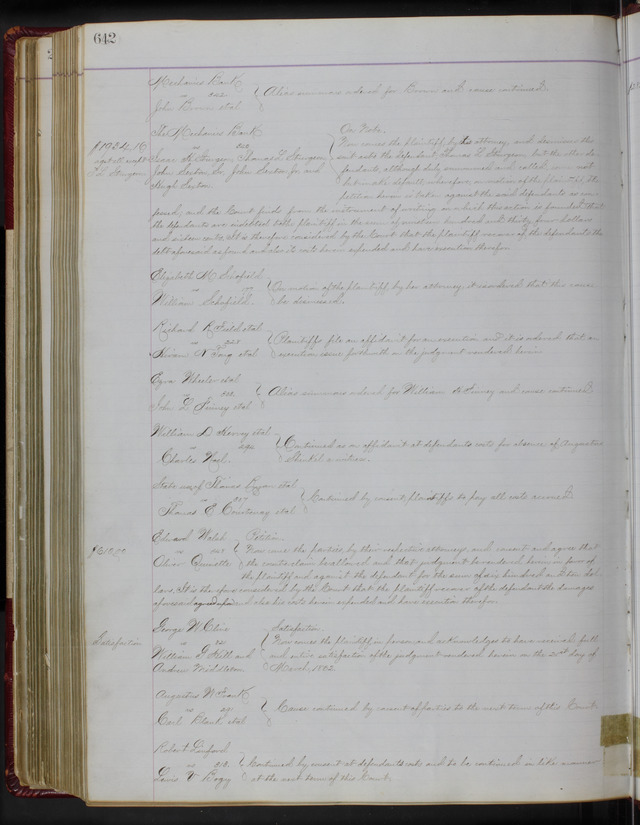 642
Mechanics Bank
vs 242
John Bowen et al
Alias summons ordered for Bowen and cause continued.
The Mechanics Bank
vs
Isaac H. Sturgeon, Thomas L. Sturgeon
John Sexton Sr. John Sexton Jr. and
Hugh Sexton
$1934.16
agst all except
T L Sturgeon
On Note.
Now comes the plaintiff by his attorney, and dismisses this
suit as to the defendant Thomas L. Sturgeon but the other de-
fendants, although duly summoned and called, come not
but make default, wherefore, on motion of the plaintiff the
petition herein is taken against the said defendants as con-
fessed, and the Court finds from the instrument of writing on which this action is founded, that
the defendants are indebted to the plaintiff in the sum of nineteen hundred and thirty four dollars
and sixteen cents, It is therefore considered by the Court that the plaintiff recover of the defendants the
debt aforesaid as found and also its costs herein expended and have execution therefor.
Elizabeth M. Scofield
vs
William Schofield
On motion of the plaintiff by her attorney, it is ordered that this cause
be dismissed.
Richard R Field et al
vs
Hiram N Fang et al
Plaintiffs file an affidavit for an execution and it is ordered that an
execution issue forthwith on the judgment rendered herein.
Ezra Wheeler et al
vs
John L Finney et al
Alias summons ordered for William H Finney and cause continued.
William D Harvey et al
vs
Charles Hugh
Continued as on affidavit at defendants costs for absence of Augustus
Shenkel a witness.
State use of Thomas Ryan et al
vs
Thomas C Courtenay et al
Continued by consent, plaintiffs to pay all costs accrued.
Edward Walsh
vs
Oliver Quinette
$610.00
Petition
Now come the parties by their respective attorneys, and consent and agree that
the counterclaim be allowed and that judgment be rendered herein in favor of
the plaintiff and against the defendant for the sum of six hundred and ten dol-
lars. It is therefore considered by the Court that the plaintiff recover of the defendant the damages
aforesaid agreed upon and also his costs herein expended and have execution therefor.
George W Cline
vs
William G Hill and
Andrew Middleton
Satisfaction
Satisfaction.
Now comes the plaintiff in person and acknowledges to have received full
and entire satisfaction of the judgment rendered herein on the 21st day of
March, 1862
Augustus W Frank
vs
Carl Blank et al
Cause continued by consent of parties to the next term of this Court.
Robert Linford
vs
Lewis V Bogy
Continued by consent at defendants costs and to be continued in like manner
at the next term of this Court.